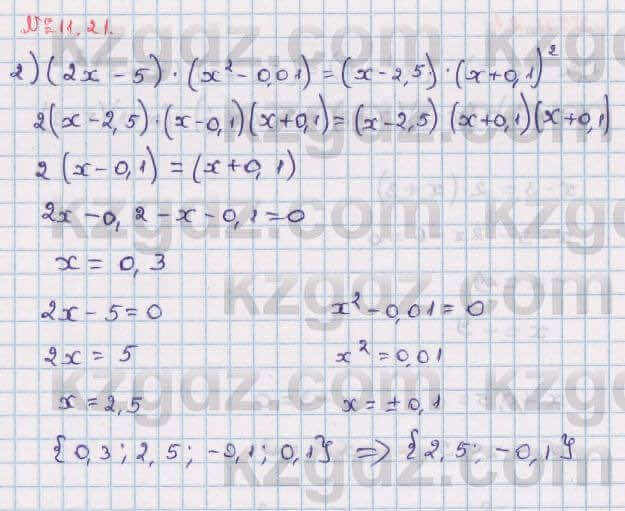 № 11.21.
2) (2x - 5) · (x² - 0,01) = (x - 2,5) · (x + 0,1)²
2(x - 2,5) · (x - 0,1)(x + 0,1) = (x - 2,5) (x + 0,1)(x + 0,1)
2(x - 0,1) = (x + 0,1)
2x - 0,2 - x - 0,1 = 0
x = 0,3
2x - 5 = 0 x² - 0,01 = 0
2x = 5 x² = 0,01
x = 2,5 x = ±0,1
{0,3; 2,5; -0,1; 0,1} => {2,5; -0,1}
kzgdz.com kzgdz.com
kzgdz.com
kzgdz.com kzgdz.com
kzgdz.com
kzgdz.com kzgdz.com
kzgdz.com